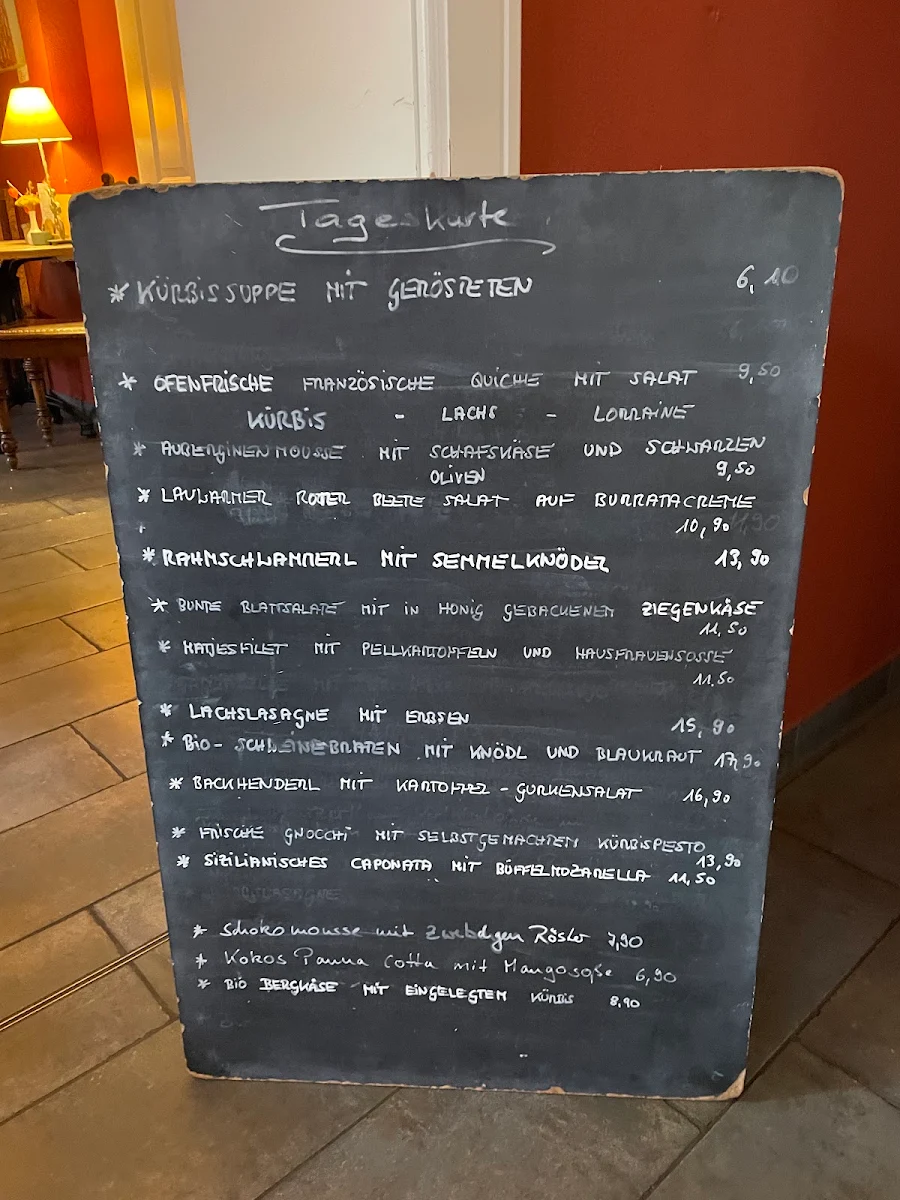 Tageskarte
* KÜRBISSUPPE MIT GERÖSTETEN 6,10
* OFENFRISCHE FRANZÖSISCHE QUICHE MIT SALAT 9,50
KÜRBIS - LACHS - LORRAINE
* AUBERGINENMOUSSE MIT SCHAFSKÄSE UND SCHWARZEN
OLIVEN 9,50
* LAUWARMER ROTER BEETE SALAT AUF BURRATACREME
10,90
* RAHMSCHWAMMERL MIT SEMMELKNÖDEL 13,90
* BUNTE BLATTSALATE MIT IN HONIG GEBACKENEM ZIEGENKÄSE
11,50
* MATJESFILET MIT PELLKARTOFFELN UND HAUSFRAUENSOSSE
11,50
* LACHSLASAGNE MIT ERBSEN 15,90
* BIO-SCHWEINEBRATEN MIT KNÖDL UND BLAUKRAUT 17,90
* BACKHENDERL MIT KARTOFFEL-GURKENSALAT 16,90
* FRISCHE GNOCCHI MIT SELBSTGEMACHTEM KÜRBISPESTO
13,90
* SIZILIANISCHES CAPONATA MIT BÜFFELMOZARELLA 11,50
* Schokomousse mit 7,90
* Kokos Panna Cotta mit Mangosoße 6,90
* BIO BERGKÄSE MIT EINGELEGTEM KÜRBIS 8,90